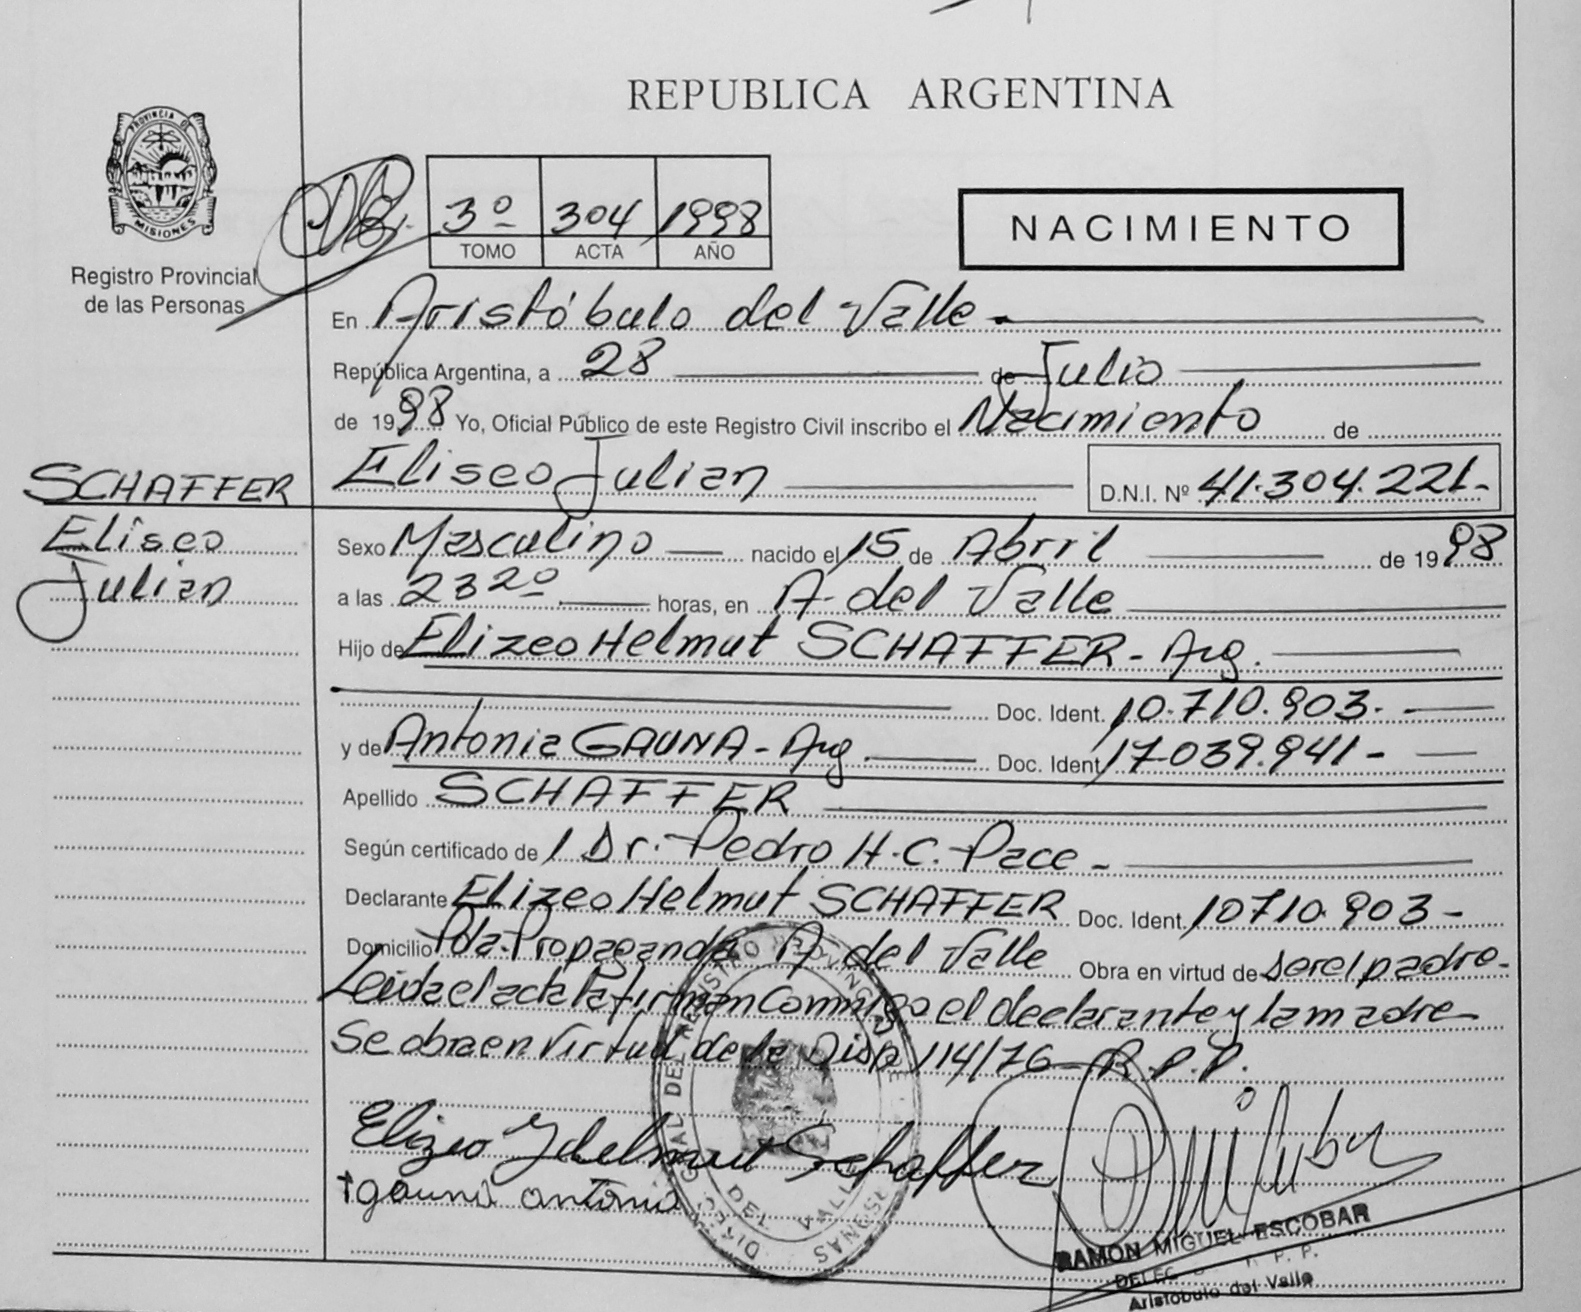 REPUBLICA ARGENTINA
PROVINCIA DE MISIONES
Registro Provincial
de las Personas
3º 304 1998
TOMO ACTA AÑO
NACIMIENTO
En Aristóbulo del Valle
República Argentina, a 28 de Julio
de 1998 Yo, Oficial Público de este Registro Civil inscribo el Nacimiento de
Eliseo Julian D.N.I. Nº 41.304.221.-
SCHAFFER
Eliseo
Julian
Sexo Masculino nacido el 15 de Abril de 1998
a las 23 20 horas, en A. del Valle
Hijo de Elizeo Helmut SCHAFFER - Arg.
Doc. Ident. 10.710.903.-
y de Antonia GAUNA - Arg Doc. Ident. 17.039.941-
Apellido SCHAFFER
Según certificado de 1 Dr. Pedro H.C. Pace -
Declarante Elizeo Helmut SCHAFFER Doc. Ident. 10710.903-
Domicilio Pda. Propaganda A. del Valle Obra en virtud de ser el padre-
Leida el acta la firman Conmigo el declarante y la madre
Se obra en virtud de la Disp 114/76 R.P.P.
Elizeo Helmut Schaffer
gauna antonia
RAMON MIGUEL ESCOBAR
DELEG R. P. P.
Aristobulo del Valle